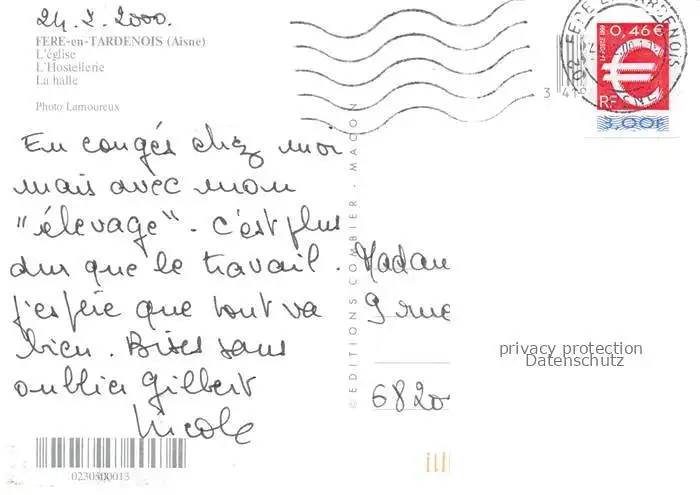 24.7.2000.
FERE-en-TARDENOIS (Aisne)
L'église
L'Hostellerie
La halle
Photo Lamoureux
En congés chez moi
mais avec mon
"élevage". C'est plus
dur que le travail.
J'espère que tout va
bien. Bises sans
oublier Gilbert
Nicole
0230500013
© EDITIONS COMBIER - MACON
0,46 €
RF
3,00F
Madam
9 rue
6820
privacy protection
Datenschutz